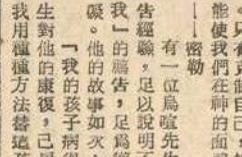 。只有制自己
能使我們在神的面
——密勒
有一位爲喧先生
告經驗，足以說明不
我』的禱告，足爲
礙。他的故事如次：
『我的孩子病得
生對他的康復，已屬
我用種種方法替這孩